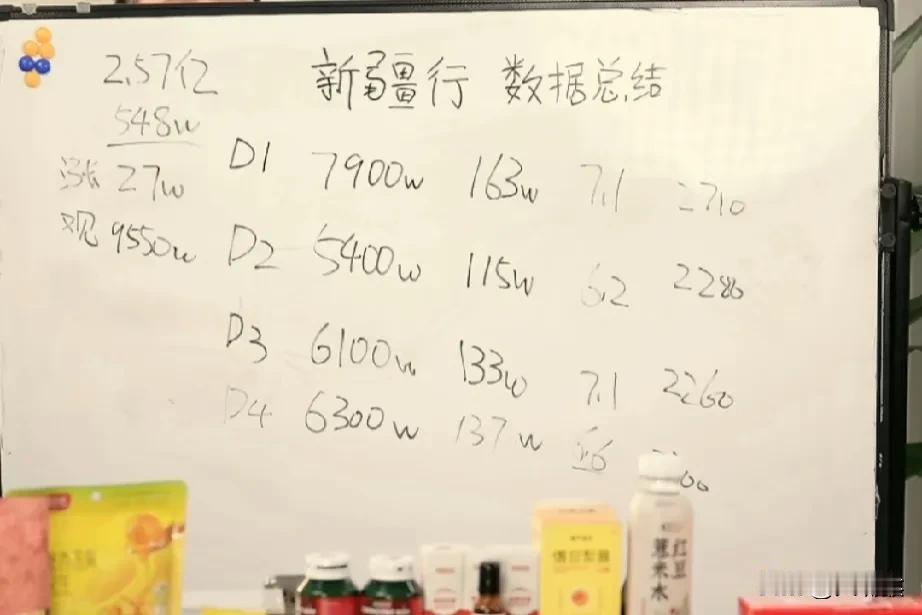 2.57亿 新疆行 数据总结
548w
涨 27w
观 9550w
D1 7900w 163w 7.1 2710
D2 5400w 115w 6.2 2280
D3 6100w 133w 7.1 2260
D4 6300w 137w 6.6
红豆
薏米水